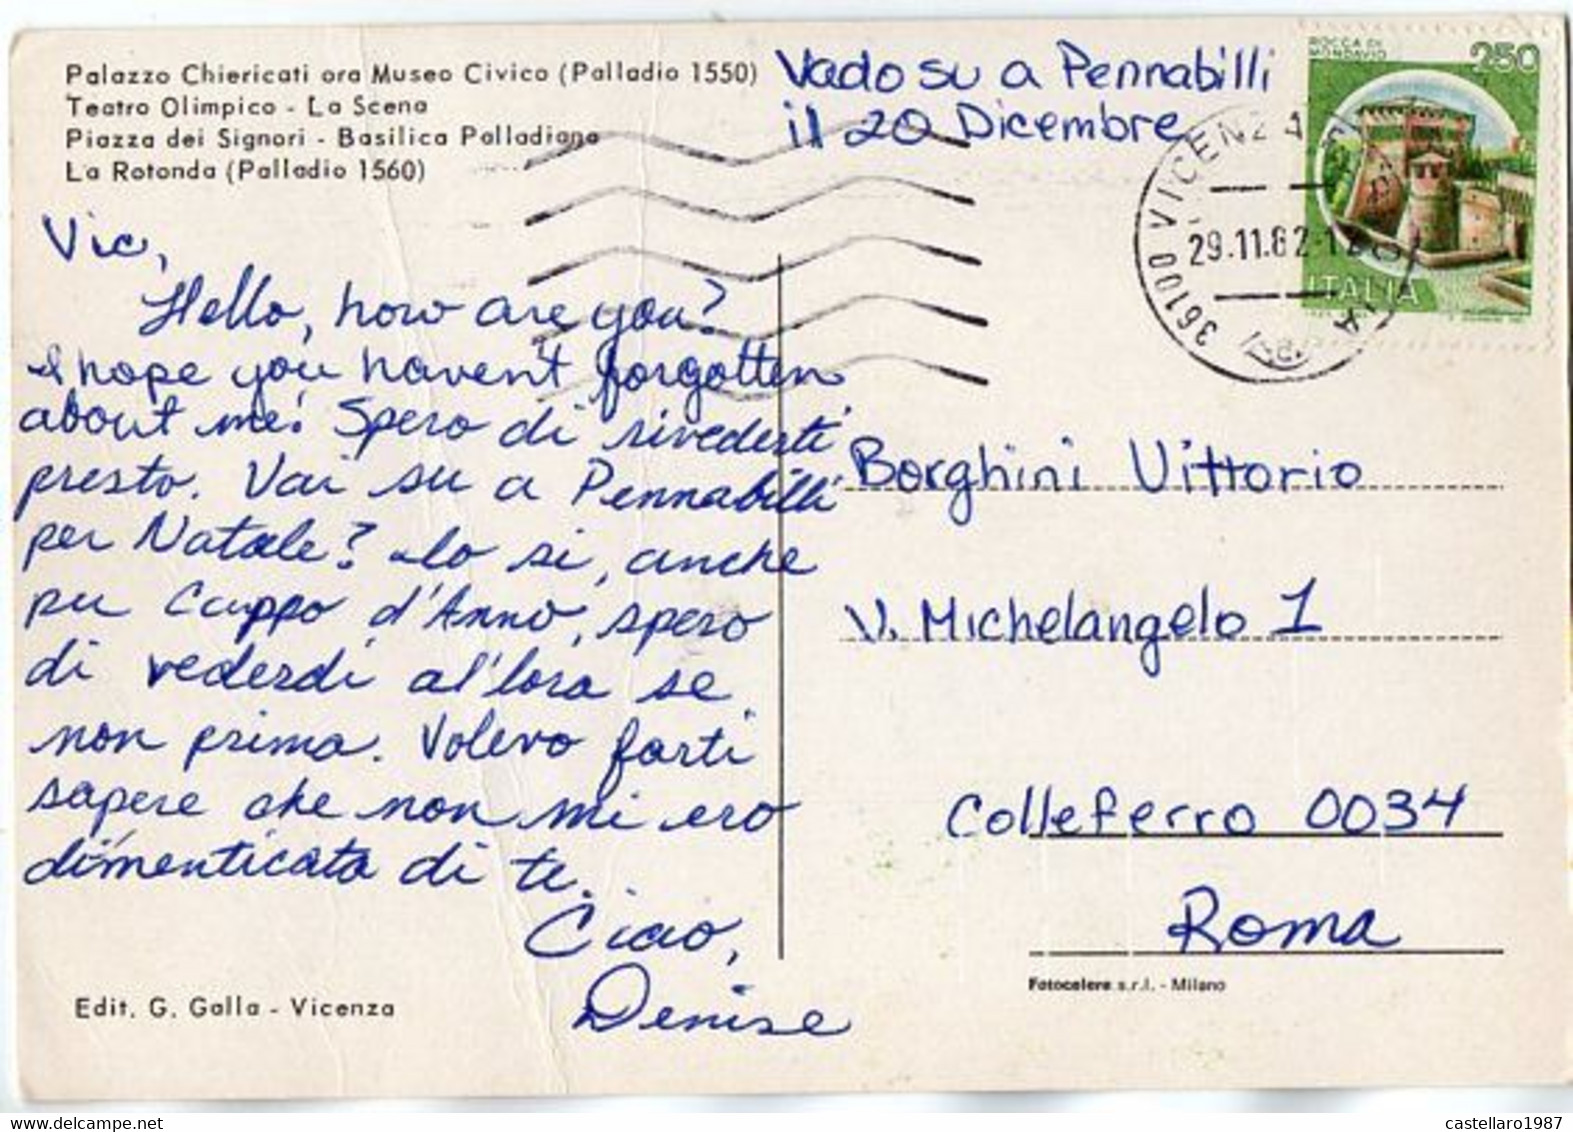 Palazzo Chiericati ora Museo Civico (Palladio 1550)
Teatro Olimpico - La Scena
Piazza dei Signori - Basilica Palladiana
La Rotonda (Palladio 1560)
Vado su a Pennabilli
il 20 Dicembre
ROCCA DI
MONDAVIO
250
ITALIA
36100 VICENZA
29.11.82-12
Vic,
Hello, how are you?
I hope you haven't forgotten
about me! Spero di rivederti
presto. Vai su a Pennabilli
per Natale? Io si, anche
per Cappo d'Anno, spero
di vederdi al'lora se
non prima. Volevo farti
sapere che non mi ero
dimenticata di te.
Ciao,
Denise
Borghini Vittorio
V. Michelangelo 1
Colleferro 0034
Roma
Fotocelere s.r.l. - Milano
Edit. G. Galla - Vicenza
castellaro1987